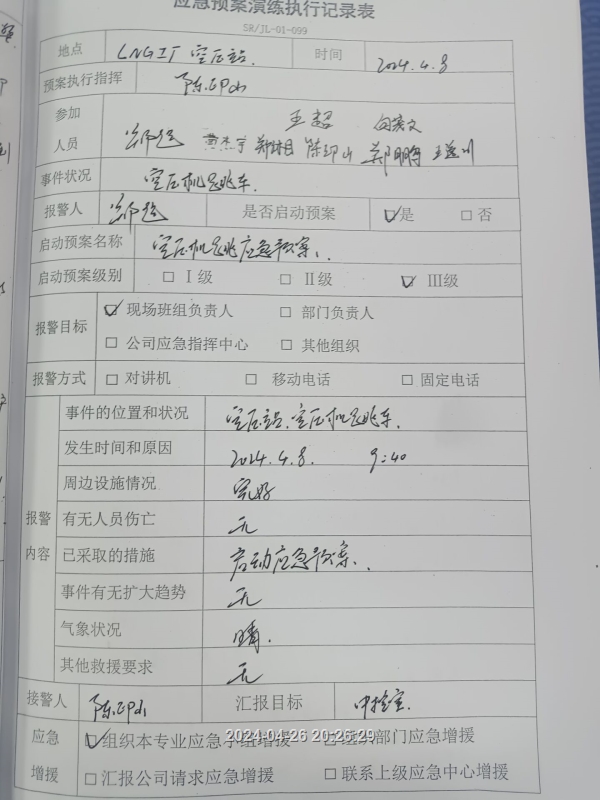 应急预案演练执行记录表
SR/JL-01-099
地点 LNG工厂 空压站. 时间 2024.4.8
预案执行指挥 陈印山
王超
参加人员 郑超 陈印山 郑鹏
事件状况 空压机跳车.
报警人 郑超 是否启动预案 ☑是 □否
启动预案名称 空压机跳应急预案.
启动预案级别 □Ⅰ级 □Ⅱ级 ☑Ⅲ级
报警目标 ☑现场班组负责人 □部门负责人
□公司应急指挥中心 □其他组织
报警方式 □对讲机 □移动电话 □固定电话
报警内容
事件的位置和状况 空压站.空压机跳车.
发生时间和原因 2024.4.8. 9:40
周边设施情况 完好
有无人员伤亡 无
已采取的措施 启动应急预案.
事件有无扩大趋势 无
气象状况 晴.
其他救援要求 无
接警人 陈印山 汇报目标 中控室.
应急增援 ☑组织本专业应急小组增援 □组织部门应急增援
2024-04-26 20:26:29
□汇报公司请求应急增援 □联系上级应急中心增援